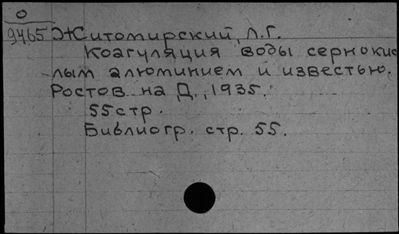 О
9465 Житомирский, Л.Г.
Коагуляция воды сернокис-
лым алюминием и известью.
Ростов на Д., 1935.
55 стр.
Библиогр. стр. 55.